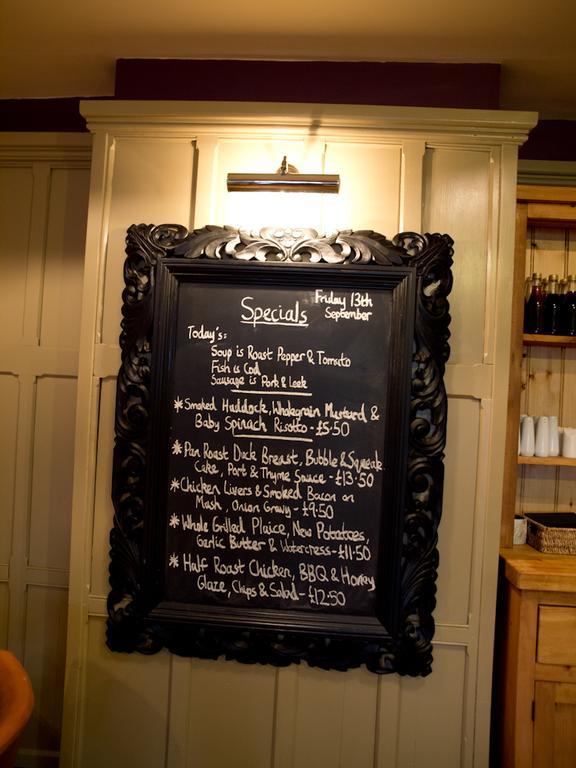 Specials
Friday 13th
September
Today's:
Soup is Roast Pepper & Tomato
Fish is Cod
Sausage is Pork & Leek
*Smoked Haddock, Wholegrain Mustard &
Baby Spinach Risotto - £5.50
*Pan Roast Duck Breast, Bubble & Squeak
Cake, Port & Thyme Sauce - £13.50
*Chicken Livers & Smoked Bacon on
Mash, Onion Gravy - £9.50
*Whole Grilled Plaice, New Potatoes,
Garlic Butter & Watercress - £11.50
*Half Roast Chicken, BBQ & Honey
Glaze, Chips & Salad - £12.50